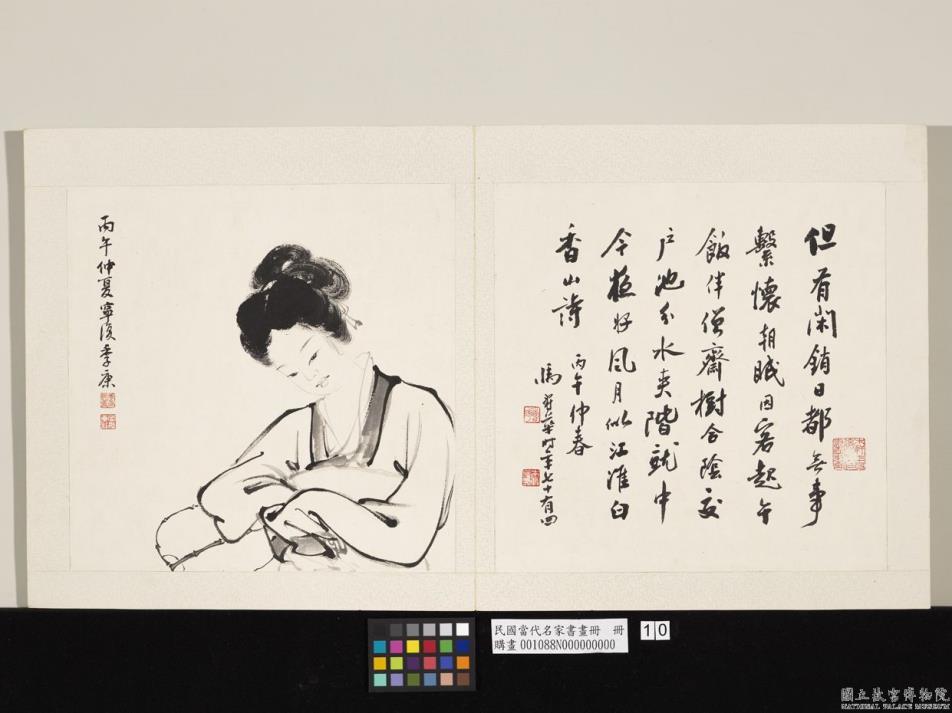 但有閑銷日都無事
繫懷朝眠因客起午
飯伴僧齋樹合陰交
戶池分水夾階就中
今夜好風月似江淮白
香山詩
丙午仲春
馬壽華時年七十有四
丙午仲夏寧復季康
民國當代名家書畫冊 冊
購畫 001088N000000000
10
國立故宮博物院
NATIONAL PALACE MUSEUM